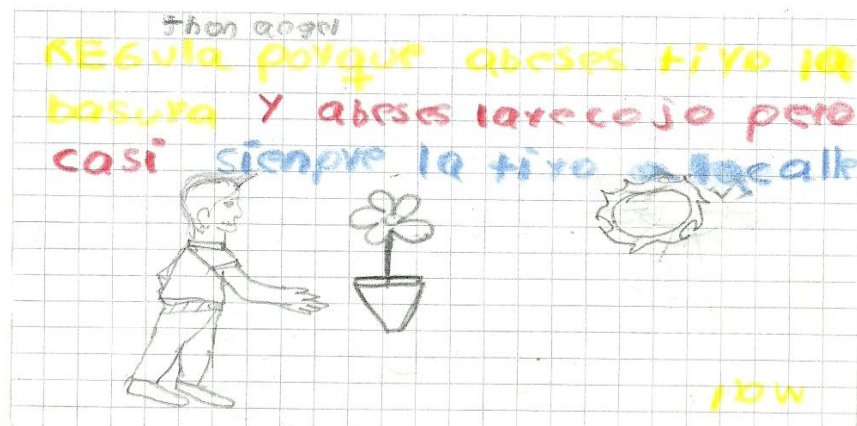 Jhon angel
REGula porque abeses tiro la
basura Y abeses larecojo pero
casi sienpre la tiro a lacalle